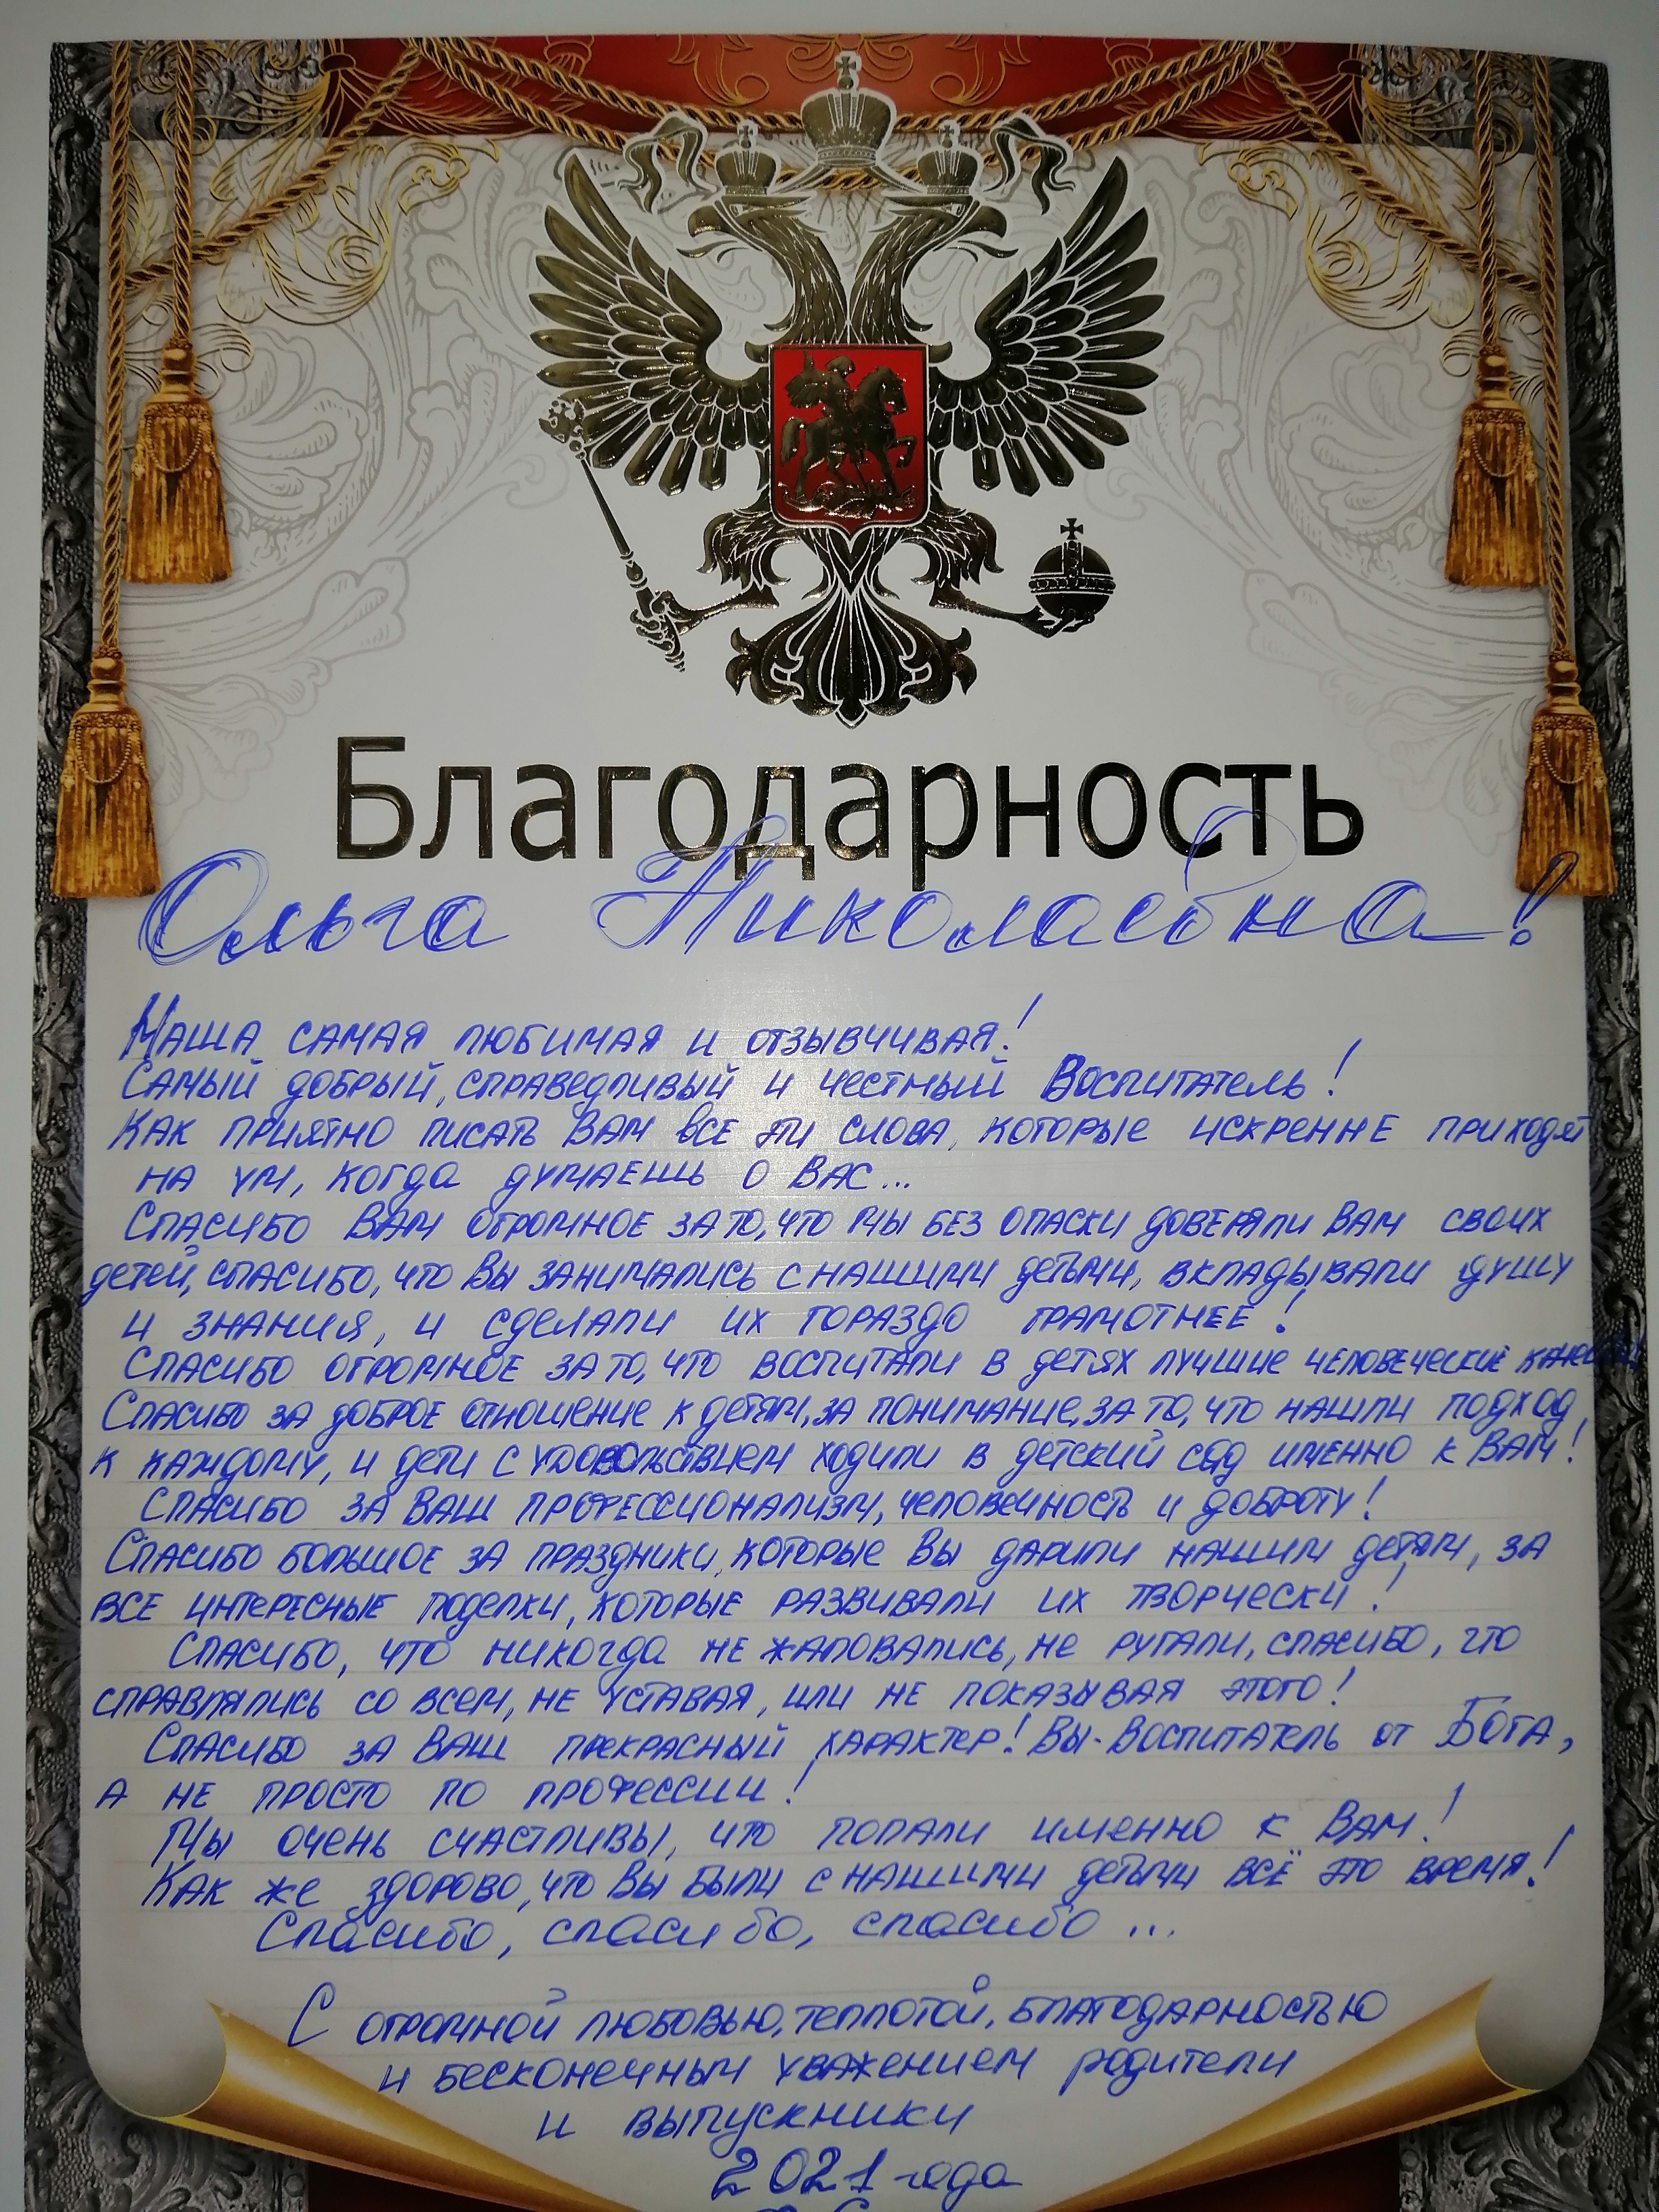 Благодарность
Ольга Николаевна!
Наша самая любимая и отзывчивая!
Самый добрый, справедливый и честный Воспитатель!
Как приятно писать Вам все эти слова, которые искренне приходят
на ум, когда думаешь о Вас...
Спасибо Вам огромное за то, что мы без опаски доверяли Вам своих
детей, спасибо, что Вы занимались с нашими детьми, вкладывали душу
и знания, и сделали их гораздо грамотнее!
Спасибо огромное за то, что воспитали в детях лучшие человеческие
Спасибо за доброе отношение к детям, за понимание, за то, что нашли подход
к каждому, и дети с удовольствием ходили в детский сад именно к Вам!
Спасибо за Ваш профессионализм, человечность и доброту!
Спасибо большое за праздники, которые Вы дарили нашим детям, за
все интересные поделки, которые развивали их творчески!
Спасибо, что никогда не жаловались, не ругали, спасибо, что
справлялись со всем, не уставая, или не показывая этого!
Спасибо за Ваш прекрасный характер! Вы - Воспитатель от Бога,
а не просто по профессии!
Мы очень счастливы, что попали именно к Вам!
Как же здорово, что Вы были с нашими детьми всё это время!
Спасибо, спасибо, спасибо...
С огромной любовью, теплотой, благодарностью
и бесконечным уважением родители
и выпускники
2021 года